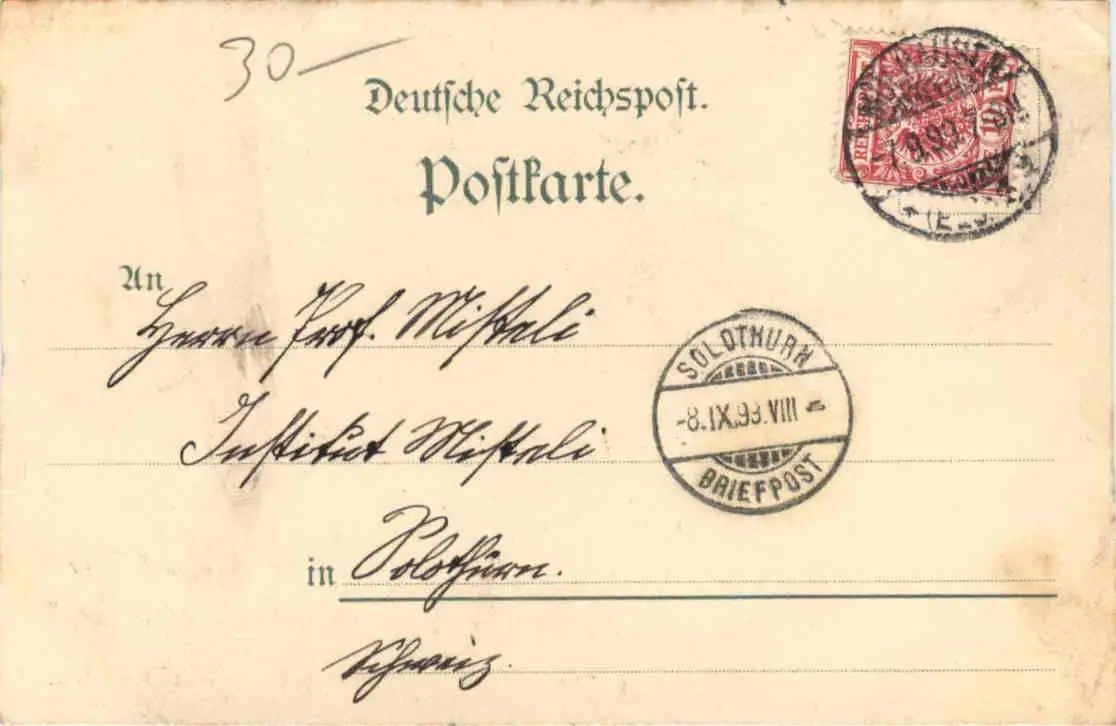 30—
Deutsche Reichspost.
Postkarte.
An
Herrn Prof. Misteli
Institut Misteli
in Solothurn.
Schweiz.
SOLOTHURN
-8.IX.98.VIII
BRIEFPOST